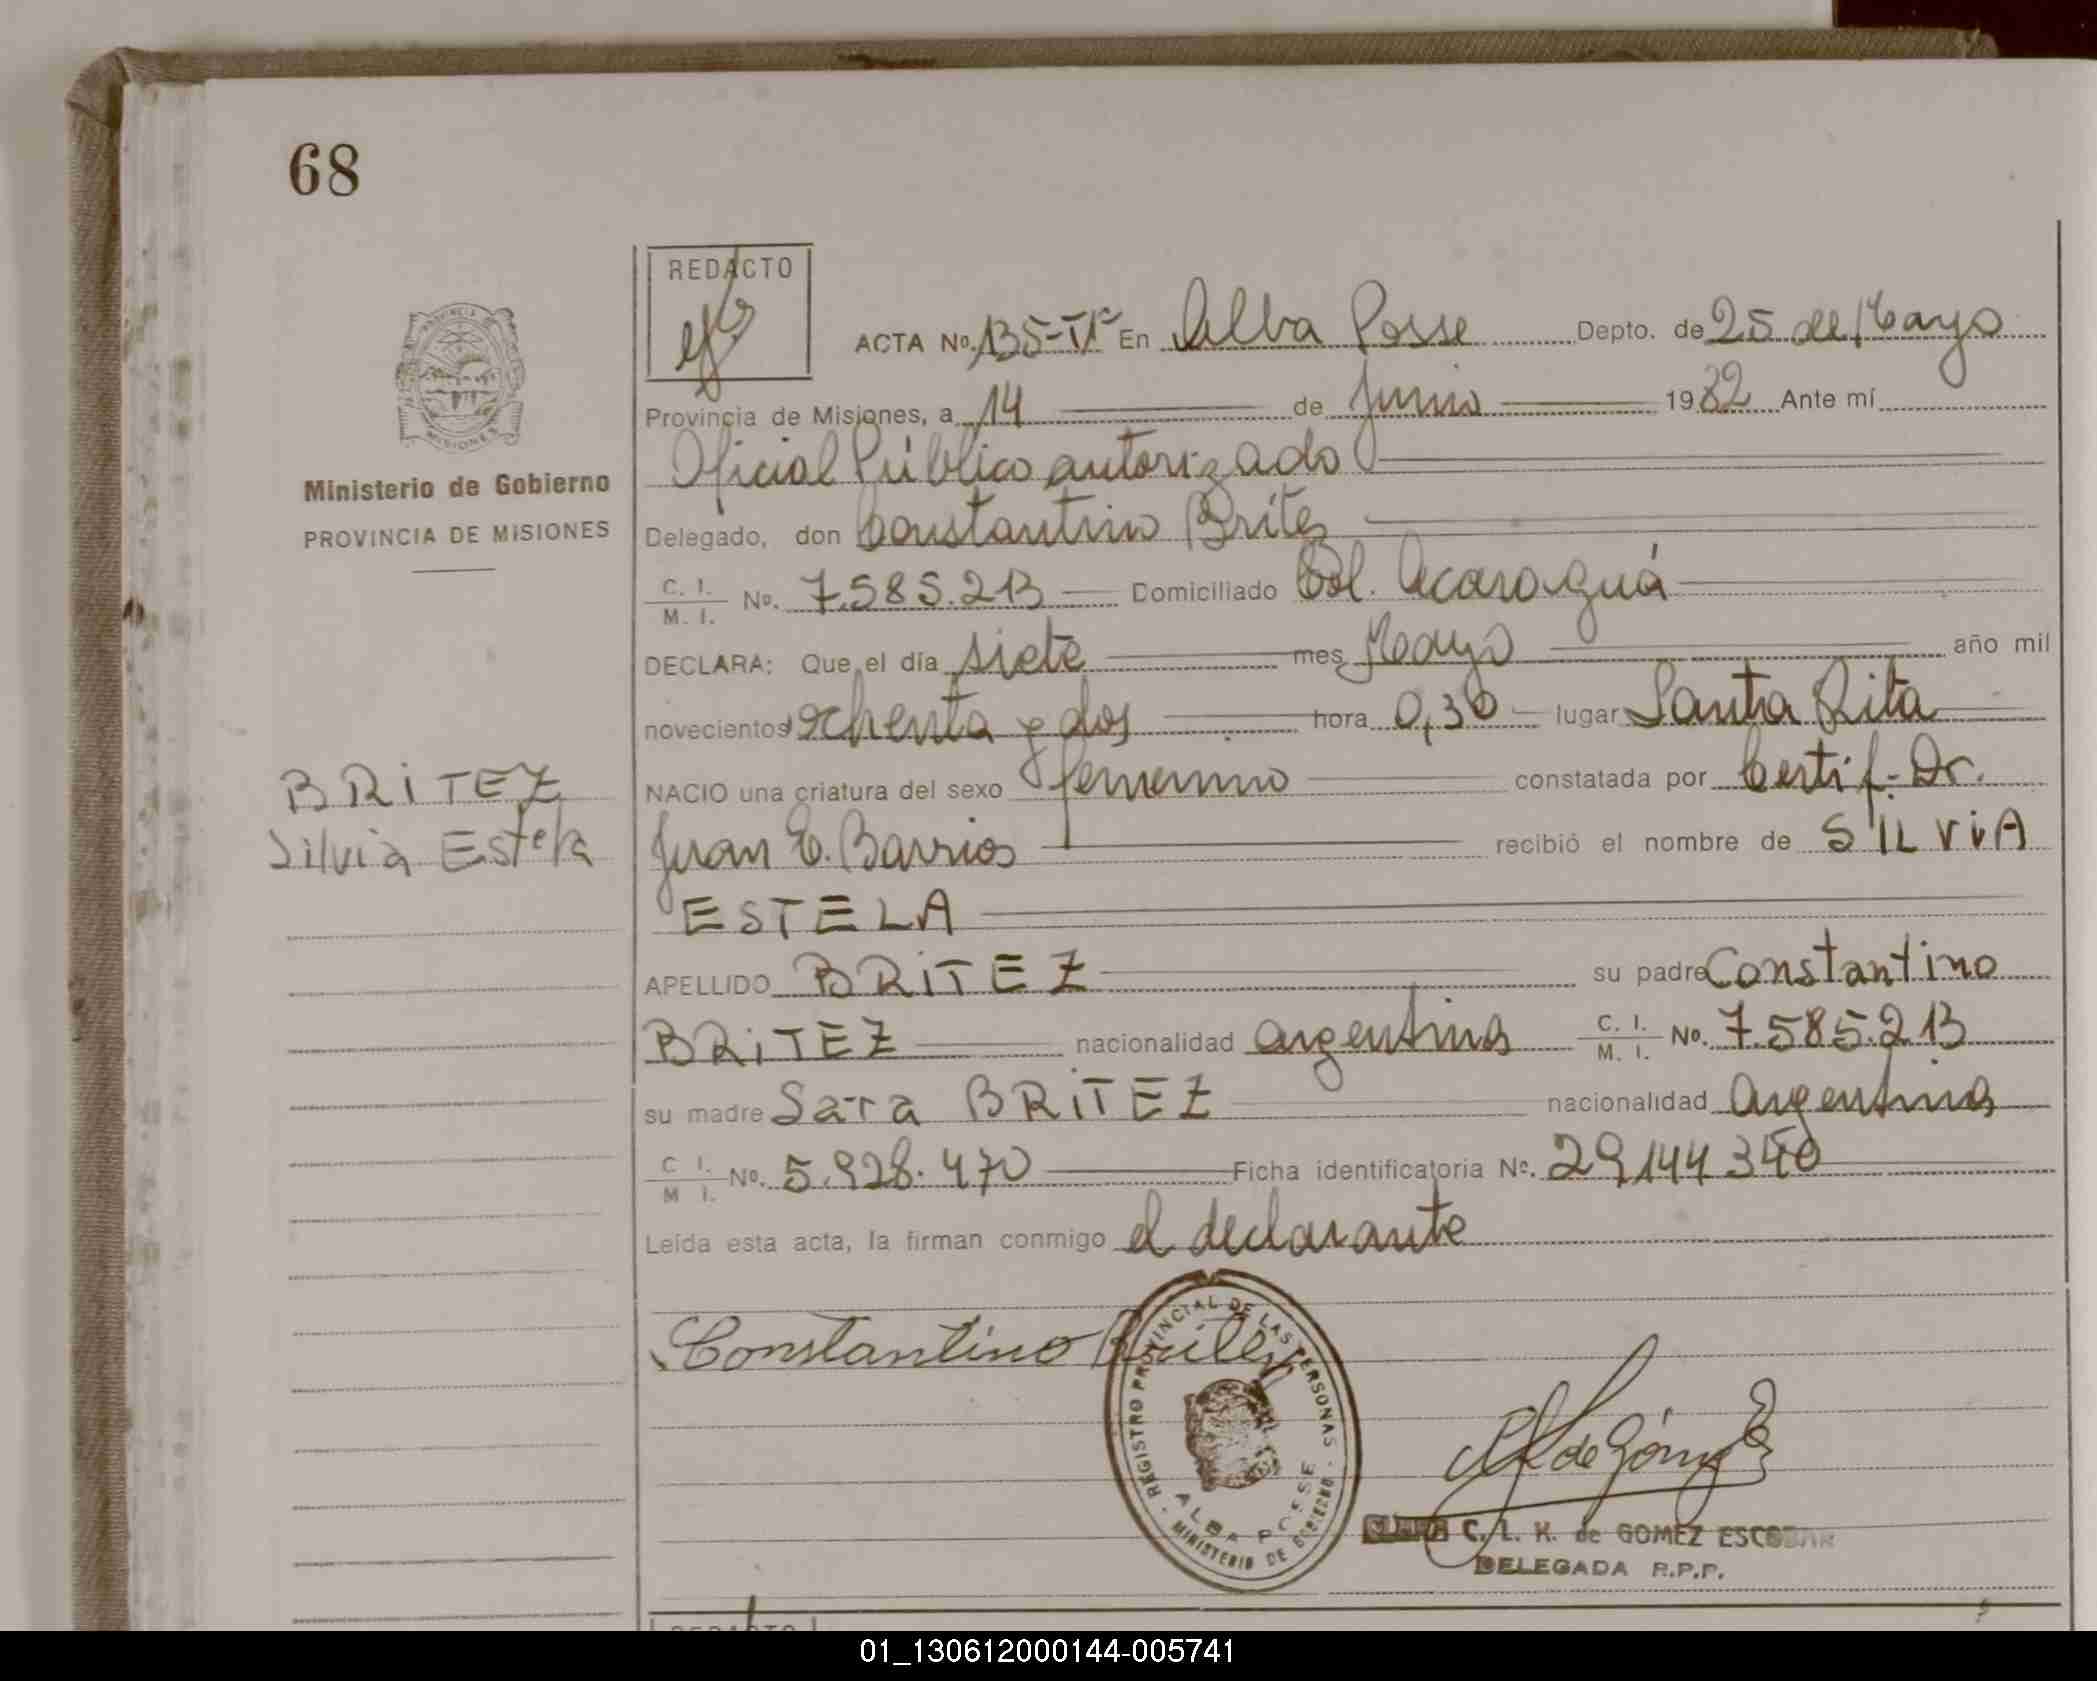 68
REDACTO
ACTA No. 135-Tº En Alba Posse Depto. de 25 de Mayo
Provincia de Misiones, a 14 de Junio 1982 Ante mí
Oficial Público autorizado
Ministerio de Gobierno
PROVINCIA DE MISIONES
Delegado, don Constantino Britez
C. I. / M. I. No. 7.585.213 Domiciliado Col. Acaraguá
DECLARA: Que el día siete mes Mayo año mil
novecientos ochenta y dos hora 0,30 lugar Santa Rita
NACIO una criatura del sexo femenino constatada por Certif. Dr.
BRITEZ
Silvia Estela
Juan E. Barrios recibió el nombre de SILVIA
ESTELA
APELLIDO BRITEZ su padre Constantino
BRITEZ nacionalidad argentina C. I. / M. I. No. 7.585.213
su madre Sara BRITEZ nacionalidad argentina
C. I. / M. I. No. 5.928.470 Ficha identificatoria No. 29144340
Leída esta acta, la firman conmigo el declarante
Constantino Britez
REGISTRO PROVINCIAL DE LAS PERSONAS
ALBA POSSE
MINISTERIO DE GOBIERNO
de Gómez
C. L. K. de GOMEZ ESCOBAR
DELEGADA R.P.P.
REDACTO
01_130612000144-005741